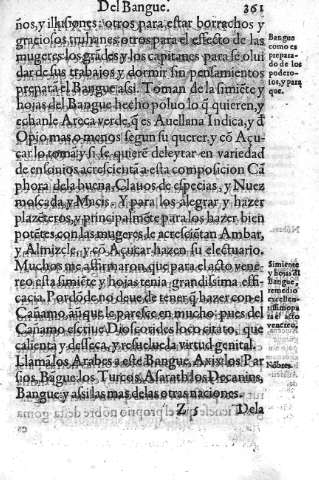 Del Bangue. 361
ños, y illusiones: otros para estar borrachos y
graciosos truhanes otros para el effecto de las
mugeres los grãdes y los capitanes para se olui
dar de sus trabajos y dormir sin pensamientos
prepara el Bangue assi. Toman de la simiẽte y
hojas del Bangue hecho poluo lo q̃ quieren, y
echanle Areca verde, q̃ es Auellana Indica, y d̃
Opio mas o menos segun su querer, y cõ Açu-
car lo toma, y si se quierẽ deleytar en variedad
de ensonios acrescientã a esta composicion Cã
phora de la buena, Clauos de especias, y Nuez
moscada, y Macis. Y para los alegrar y hazer
plazẽteros, y principalmẽte para los hazer bien
potẽtes con las mugeres le acrescientan Ambar,
y Almizcle, y cõ Açucar hazen su electuario.
Muchos me affirmaron, que para el acto vene
reo esta simiẽte, y hojas tenia grandissima effi
cacia. Por dõde no deue de tener q̃ hazer con el
Cañamo, aũque le paresce en mucho: pues del
Cañamo escriue Dioscorides loco citato, que
calienta y desseca, y resuelue la virtud genital.
Llamã los Arabes a este Bangue, Axis: los Par
sios, Bãgue: los Turcos, Asarath: los Decanins,
Bangue, y assi las mas de las otras naciones.
Z 5 Dela
Bangue
como es
prepara-
do de los
podero-
sos, y para
que.
Simiente
y hojas del
Bangue,
remedio
excellen-
tissimo pa
ra el acto
venereo.
Nõbres.